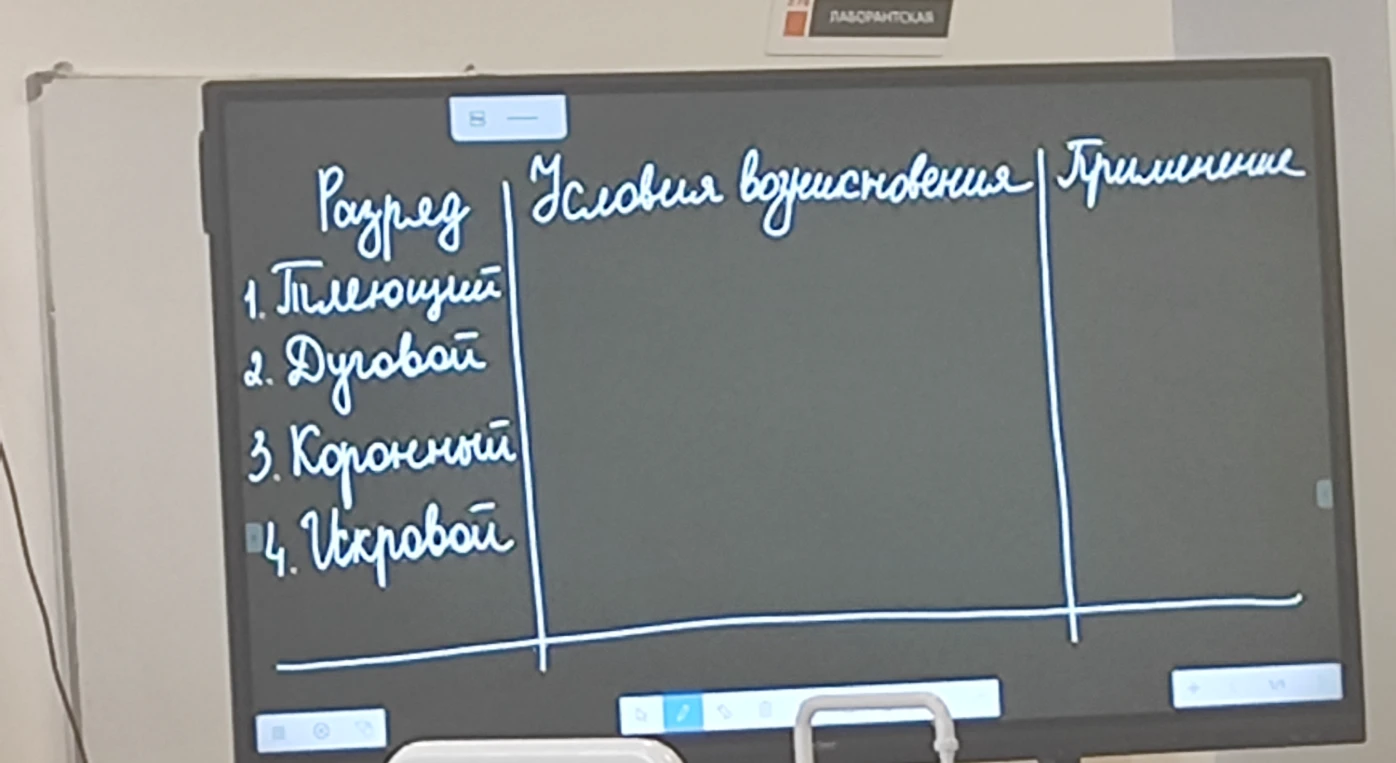 ЛАБОРАНТСКАЯ
Разряд Условия возникновения Применение
1. Тлеющий
2. Дуговой
3. Коронный
4. Искровой